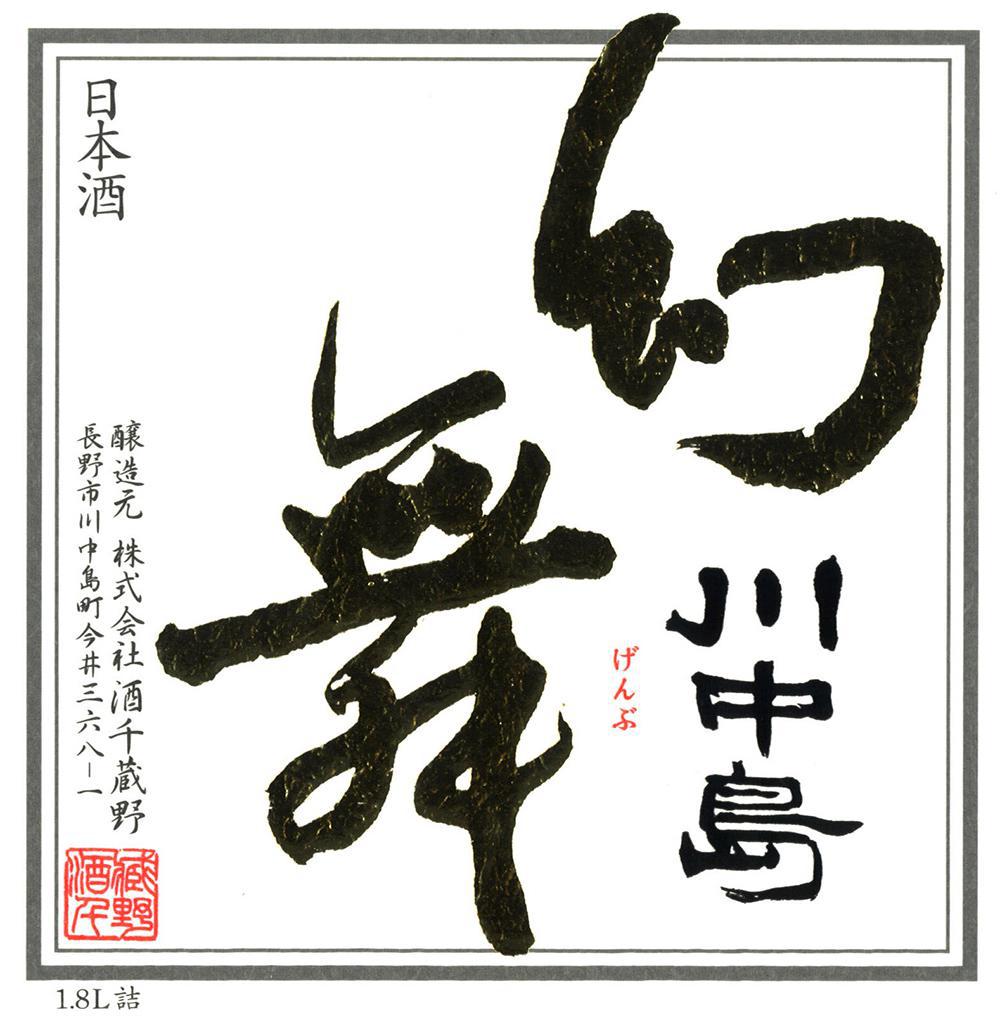 川中島
幻舞
げんぶ
日本酒
醸造元 株式会社酒千蔵野
長野市川中島町今井三六八－一
蔵野
酒千
1.8L詰